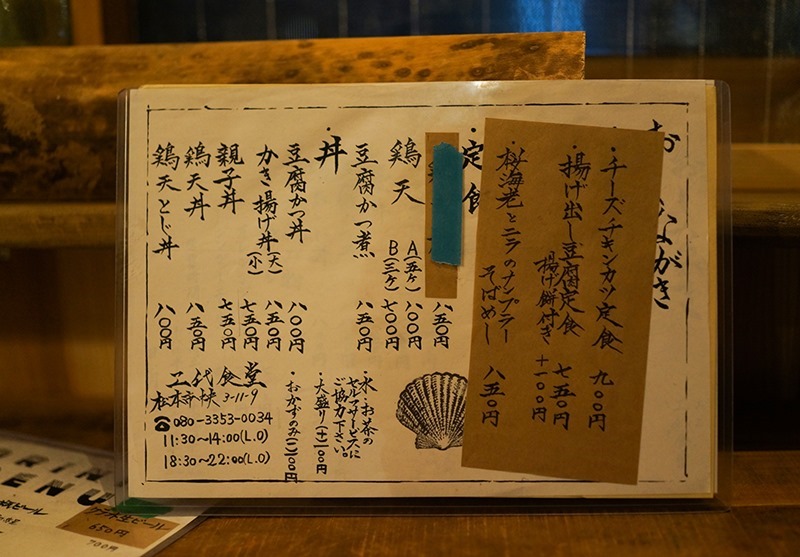 お ながき
・チーズチキンカツ定食 九〇〇円
・揚げ出し豆腐定食 七五〇円
揚げ餅付き +一〇〇円
・桜海老とニラのナンプラー
そばめし 八五〇円
・定食
八五〇円
鶏天 A(五ケ) 八〇〇円
B(三ケ) 七〇〇円
豆腐かつ煮 八五〇円
・丼
豆腐かつ丼 八〇〇円
かき揚げ丼(大) 八五〇円
(小) 七五〇円
親子丼 七五〇円
鶏天丼 八五〇円
鶏天とじ丼 八〇〇円
・水・お茶の
セルフサービスに
ご協力下さい。
・大盛り(+)一〇〇円
・おかずのみ(-)一〇〇円
食堂
松本市中央3-11-9
☎080-3353-0034
11:30～14:00(L.O)
18:30～22:00(L.O)
RIN
ENU
ビール
生ビール
650円
700円